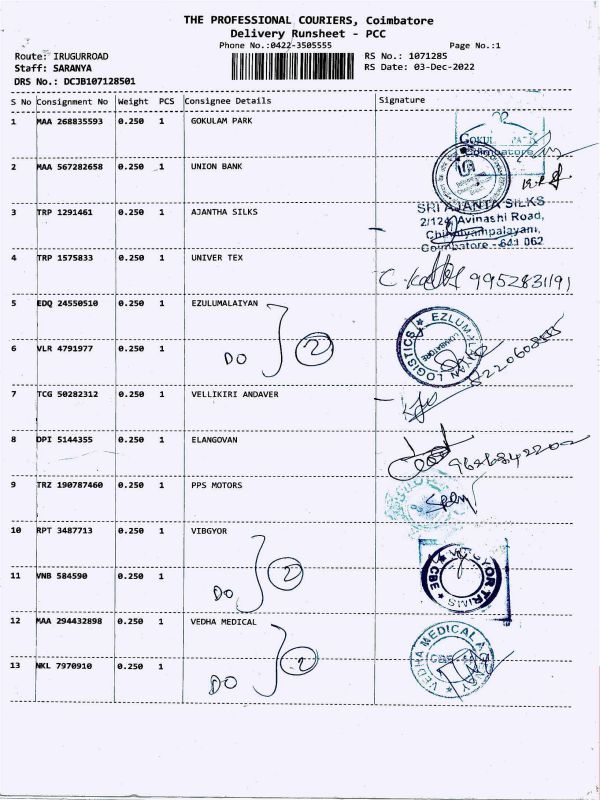 THE PROFESSIONAL COURIERS, Coimbatore
Delivery Runsheet - PCC
Phone No.:0422-3505555
Page No.:1
Route: IRUGURROAD
RS No.: 1071285
Staff: SARANYA
RS Date: 03-Dec-2022
DRS No.: DCJB107128501
S No Consignment No Weight PCS Consignee Details Signature
1 MAA 268835593 0.250 1 GOKULAM PARK
GOKUL PARK
Coimbatore
2 MAA 567282658 0.250 1 UNION BANK
3 TRP 1291461 0.250 1 AJANTHA SILKS
SRI AJANTA SILKS
2/124, Avinashi Road,
Chinniyampalayam,
Coimbatore - 641 062
4 TRP 1575833 0.250 1 UNIVER TEX
9952831191
5 EDQ 24550510 0.250 1 EZULUMALAIYAN
EZLUMALAIYAN LOGISTICS
COIMBATORE
6 VLR 4791977 0.250 1
DO 2
7 TCG 50282312 0.250 1 VELLIKIRI ANDAVER
8 DPI 5144355 0.250 1 ELANGOVAN
9626842202
9 TRZ 190787460 0.250 1 PPS MOTORS
10 RPT 3487713 0.250 1 VIBGYOR
VIBGYOR TRIMS
CBE
11 VNB 584590 0.250 1
DO 2
12 MAA 294432898 0.250 1 VEDHA MEDICAL
VEDHA MEDICAL AGENCY
13 NKL 7970910 0.250 1
DO 2